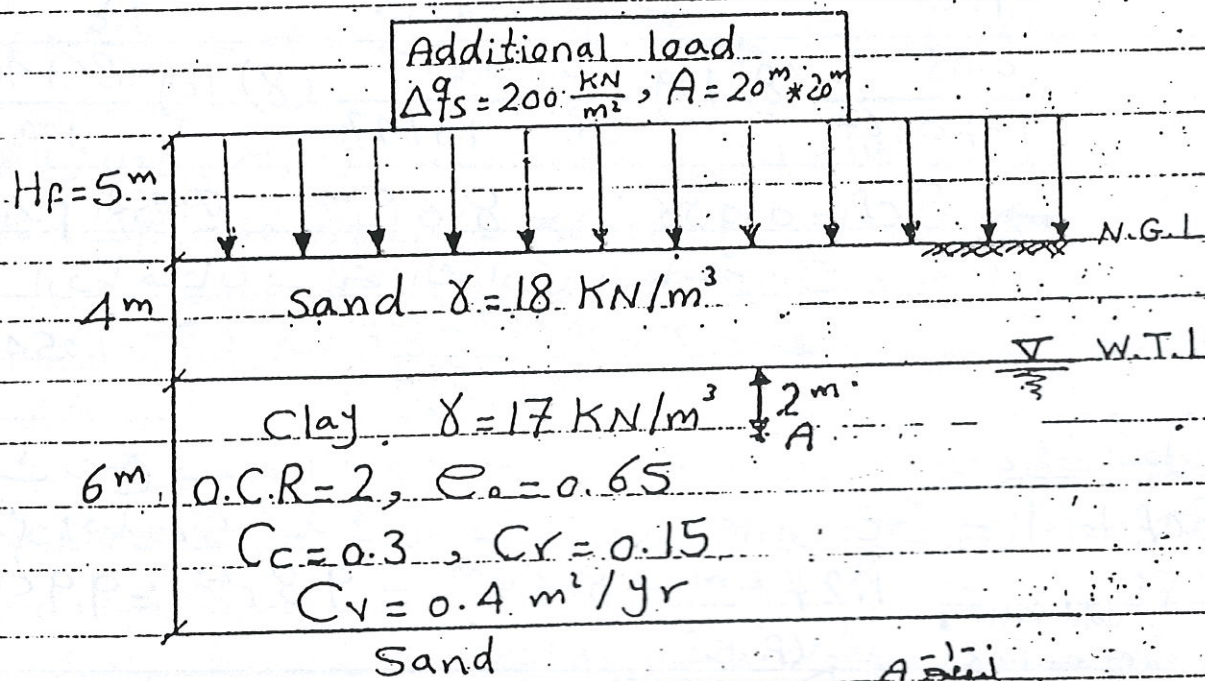 Additional load
Δqs = 200 KN/m² ; A = 20ᵐ * 20ᵐ
Hf = 5ᵐ
N.G.L
4ᵐ
Sand γ = 18 KN/m³
W.T.L
Clay γ = 17 KN/m³
2ᵐ
A
6ᵐ
O.C.R = 2, e₀ = 0.65
Cc = 0.3 , Cr = 0.15
Cv = 0.4 m²/yr
Sand